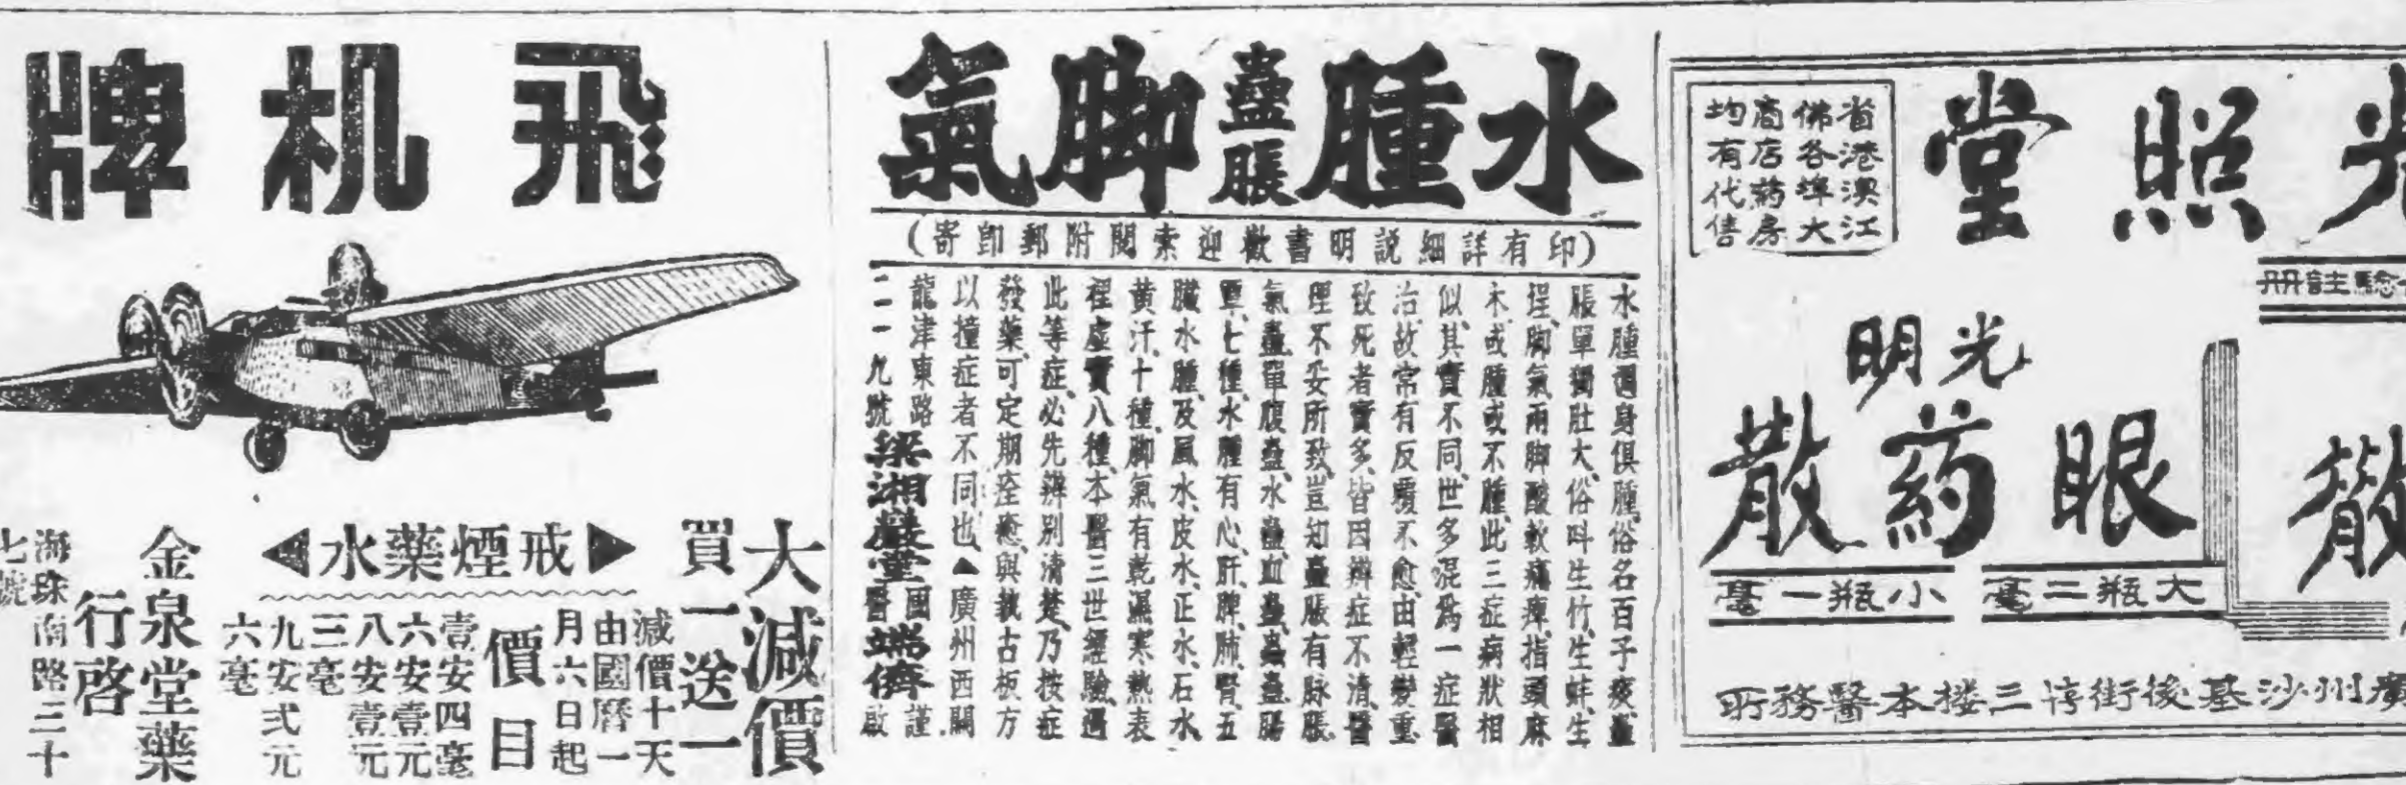 光照堂
省港澳江
佛各埠大
商店葯房
均有代售
註冊
光明
眼葯散
大瓶二毫
小瓶一毫
廣州沙基後街停三楼本醫務所
水腫
蠱脹
脚氣
（印有詳細説明書歡迎索閱附郵即寄）
水腫週身俱腫、俗名百子痰、蠱
脹單獨肚大、俗叫生竹、生蚌、生
捏、脚氣兩脚酸軟痛痺、指頭麻
木、或腫或不腫、此三症病狀相
似、其實不同、世多混爲一症醫
治、故常有反覆不愈、由輕變重、
致死者實多、皆因辨症不清、醫
理不妥所致、豈知蠱脹有脉脹、
氣蠱、單腹蠱、水蠱、血蠱、蟲蠱、腸
覃、七種、水腫有心、肝、脾、肺、腎、五
臟水腫、及風水、皮水、正水、石水、
黄汗、十種、脚氣有乾濕寒熱表
裡虛實八種、本醫三世經驗、遇
此等症、必先辨别清楚、乃按症
發藥、可定期痊癒、與執古板方
以撞症者不同也、▲廣州西關
龍津東路
二一九號梁湘巖堂國醫端儕謹啟
飛机牌
大減價
買一送一
戒煙藥水
減價十天
由國曆一
月六日起
價目
壹安四毫
六安壹元
八安壹元
三毫
九安弍元
六毫
金泉堂藥
行啓
海珠南路三十
七號